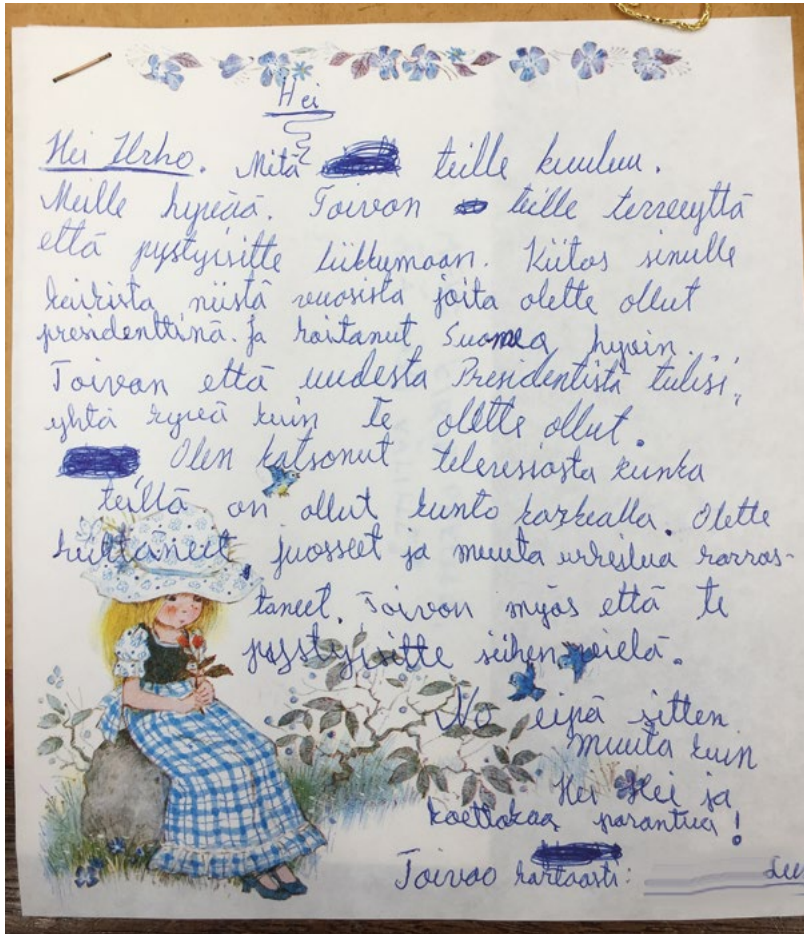 Hei
Hei Urho. Mitä teille kuuluu.
Meille hyvää. Toivon teille terveyttä
että pystyisitte liikkumaan. Kiitos sinulle
kaikista niistä vuosista joita olette ollut
presidenttinä. Ja hoitanut Suomea hyvin.
Toivon että uudesta Presidentistä tulisi,
yhtä hyvä kuin te olette ollut.
Olen katsonut televisiosta kuinka
teillä on ollut kunto korkealla. Olette
hiihtäneet juosseet ja muuta urheilua harras-
taneet. Toivon myös että te
pystyisitte siihen vielä.
No eipä sitten
muuta kuin
Hei Hei ja
koettakaa parantua!
Toivoo hartaasti: